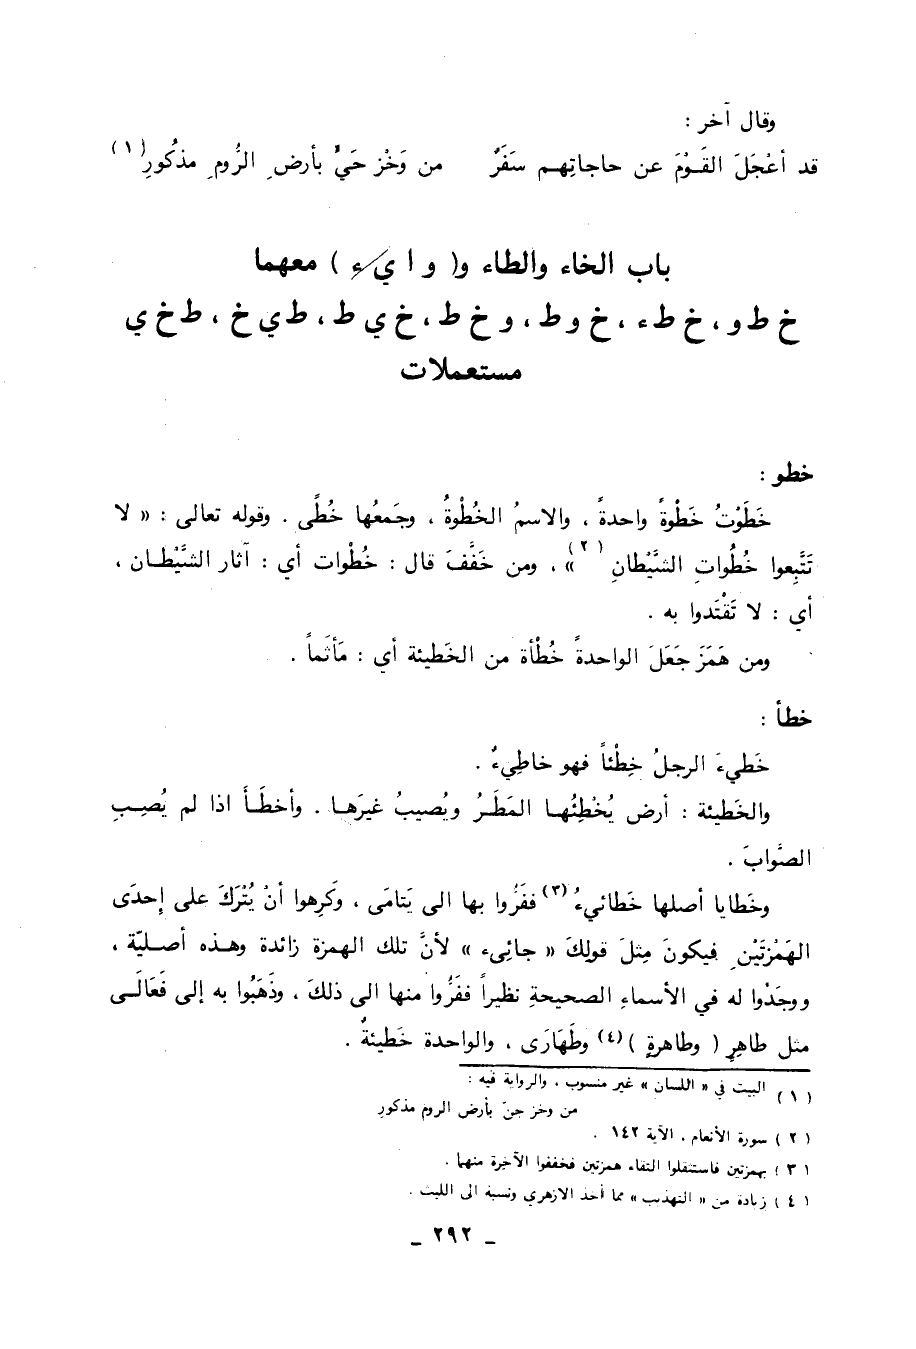 وقال آخر :
قد أعْجَلَ القَوْمَ عن حاجاتِهم سَفَرٌ من وَخْزِ حَيٍّ بأرضِ الرُّومِ مذكُورِ(١)
باب الخاء والطاء و( و ا ي ء ) معهما
خ ط و ، خ ط ء ، خ و ط ، و خ ط ، خ ي ط ، ط ي خ ، ط خ ي
مستعملات
خطو :
خَطَوْتُ خَطْوةً واحدةً ، والاسمُ الخُطْوةُ ، وجَمعُها خُطًى . وقوله تعالى : « لا
تَتَّبِعوا خُطُواتِ الشَّيْطانِ (٢) » ، ومن خَفَّفَ قال : خُطْوات أي : آثار الشَّيْطـان ،
أي : لا تَقْتَدوا به .
ومن هَمَزَ جَعَلَ الواحدةً خُطْأة من الخَطيئة أي : مَأثَماً .
خطأ :
خَطيءَ الرجلُ خِطْئاً فهو خاطِيءٌ .
والخَطيئة : أرض يُخْطِئُهـا المَطَرُ ويُصيبُ غيرَهـا . وأخطَـأَ اذا لم يُصِـبِ
الصَّوابَ .
وخَطايا أصلها خَطائيءُ (٣) ففَرُّوا بها الى يَتامَى ، وكَرِهوا أنْ يُتْرَكَ على إحدَى
الهَمْزَتَيْنِ فيكونَ مِثلَ قولِكَ « جائِىء » لأنَّ تلك الهمزة زائدة وهـذه أصـليّة ،
ووجَدْوا له في الأسماءِ الصحيحةِ نظيراً ففَرُّوا منها الى ذلكَ ، وذَهَبُوا به إلى فَعَالَـى
مثل طاهِرٍ ( وطاهرةٍ )(٤) وطَهَارَى ، والواحدة خَطيئةٌ .
(١) البيت في « اللسان » غير منسوب ، والرواية فيه :
من وخز جنّ بأرض الروم مذكورِ
(٢) سورة الأنعام ، الآية ١٤٢ .
(٣) بهمزتين فاستثقلوا التقاء همزتين فخففوا الآخرة منهما .
(٤) زيادة من « التهذيب » مما أخذ الازهري ونسبة الى الليث .
ـ ٢٩٢ ـ